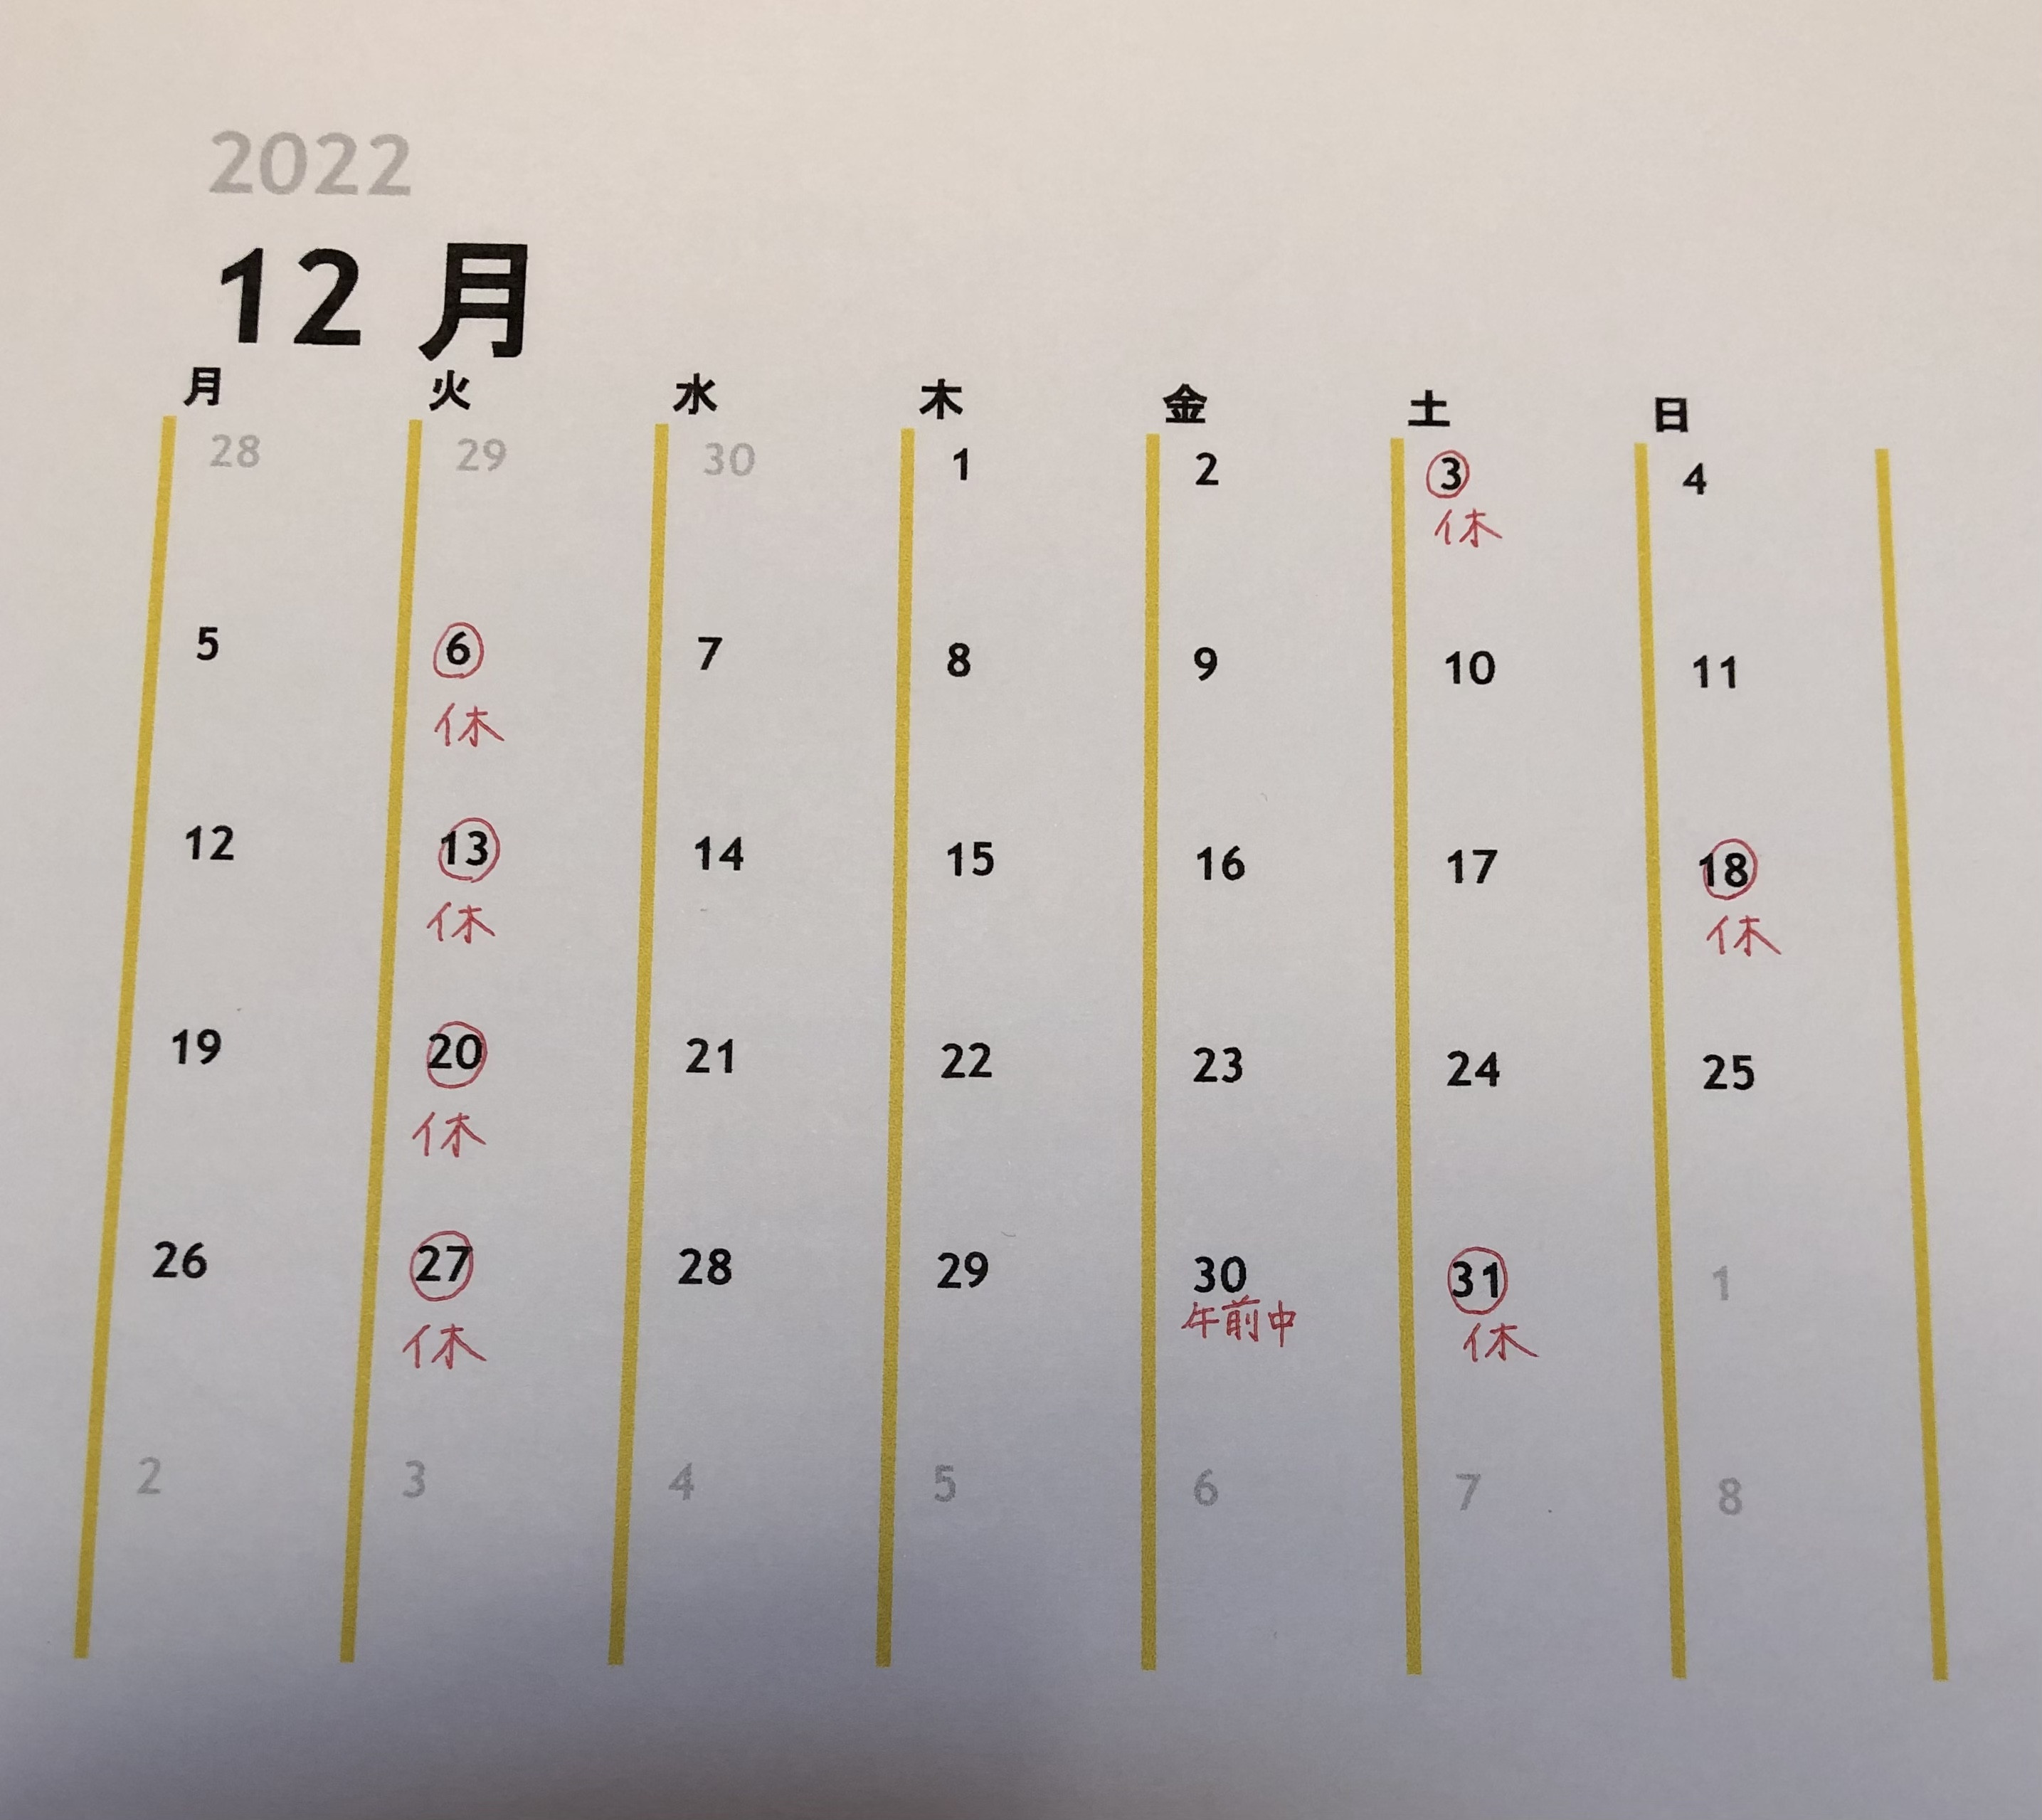 2022
12 月
月 火 水 木 金 土 日
28 29 30 1 2 3 4
休
5 6 7 8 9 10 11
休
12 13 14 15 16 17 18
休 休
19 20 21 22 23 24 25
休
26 27 28 29 30 31 1
休 午前中 休
2 3 4 5 6 7 8